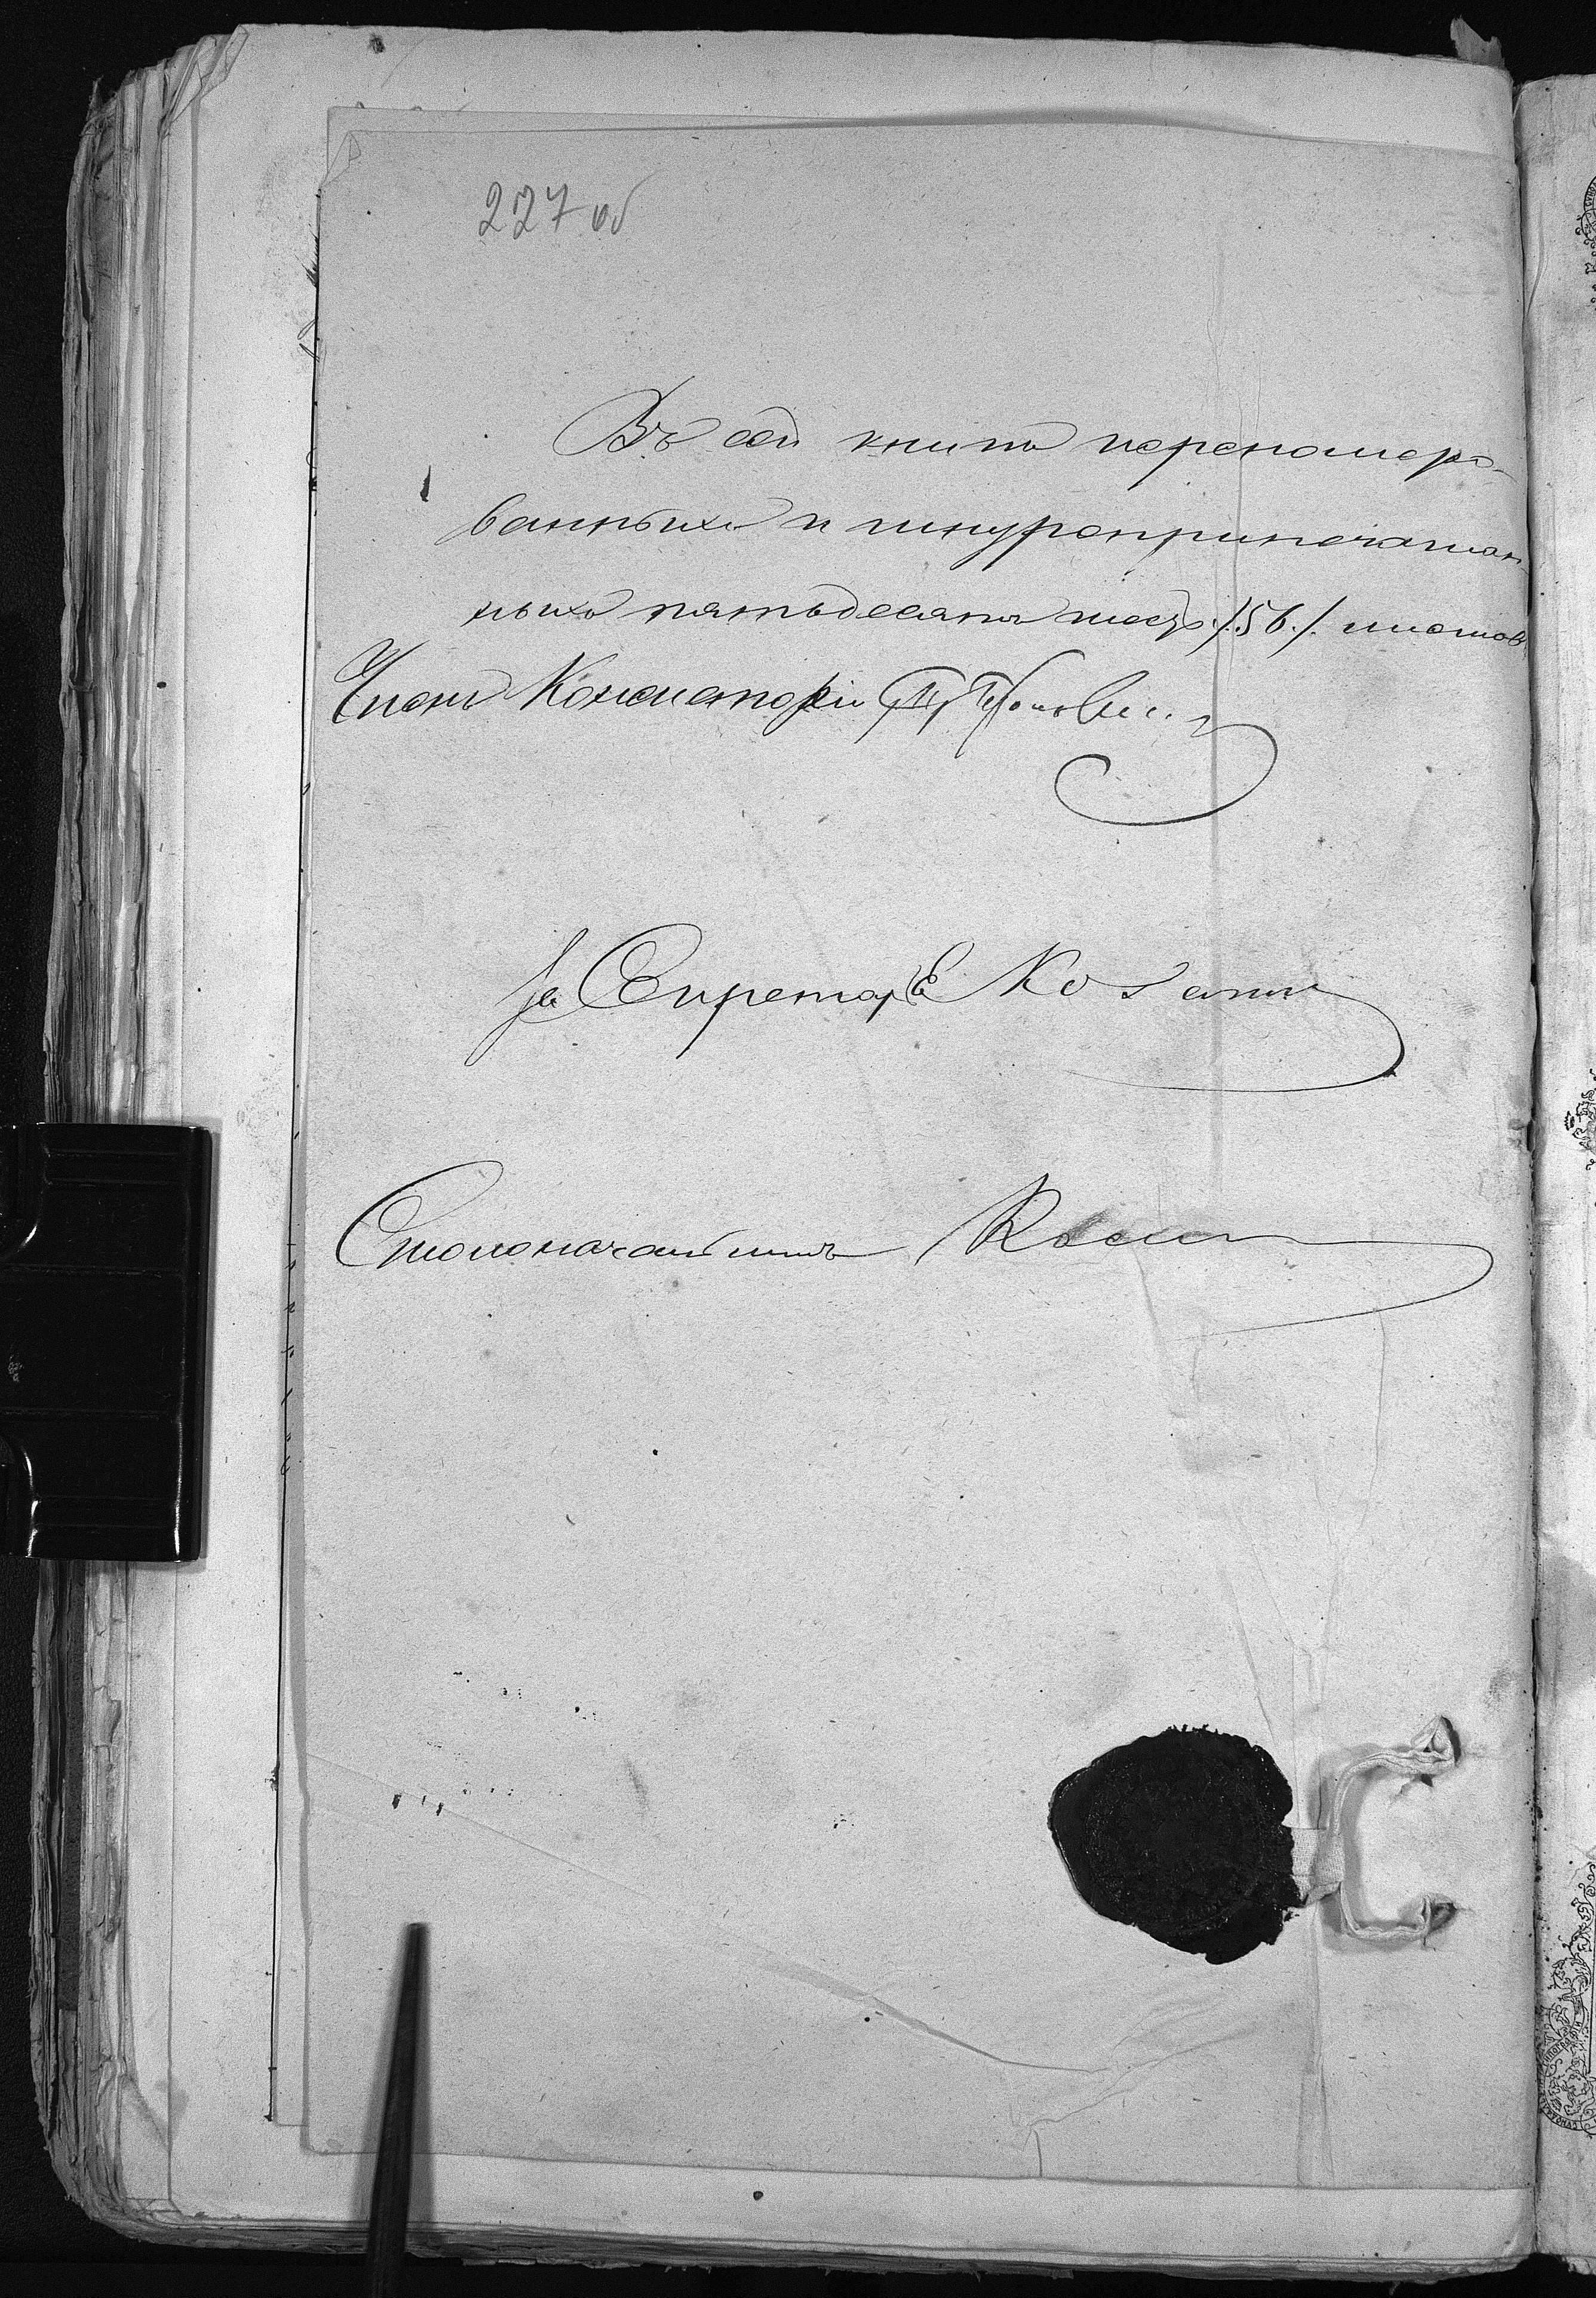 227 об
Въ сей книгѣ перенумеро-
ванныхъ и шнуроприпечатан-
ныхъ пятьдесятъ шесть /.56./ листовъ
Членъ Консисторіи
За Секретаря
Столоначальникъ